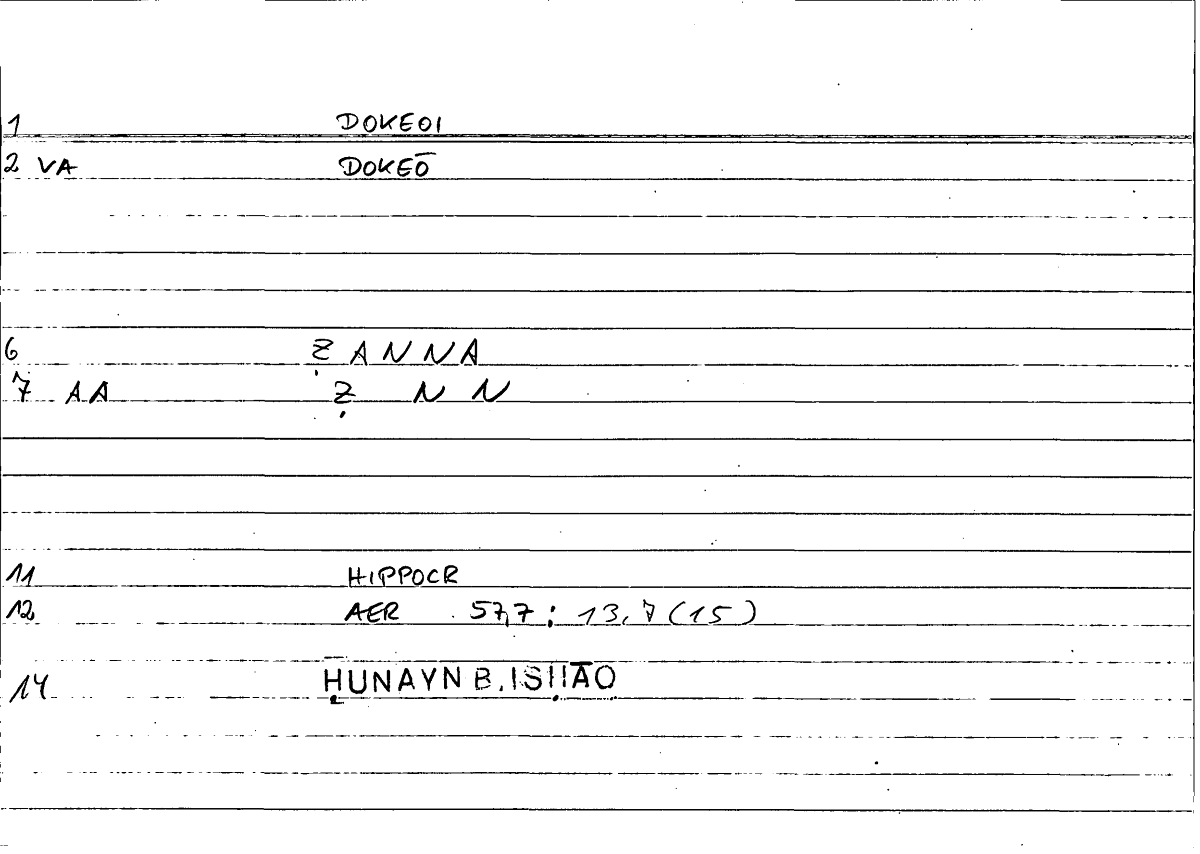 1 DOKEOI
2 VA DOKEŌ
6 ẒANNA
7 AA Ẓ N N
11 HIPPOCR
12 AER 57,7 : 13,7 (15)
14 ḤUNAYN B. ISḤĀQ